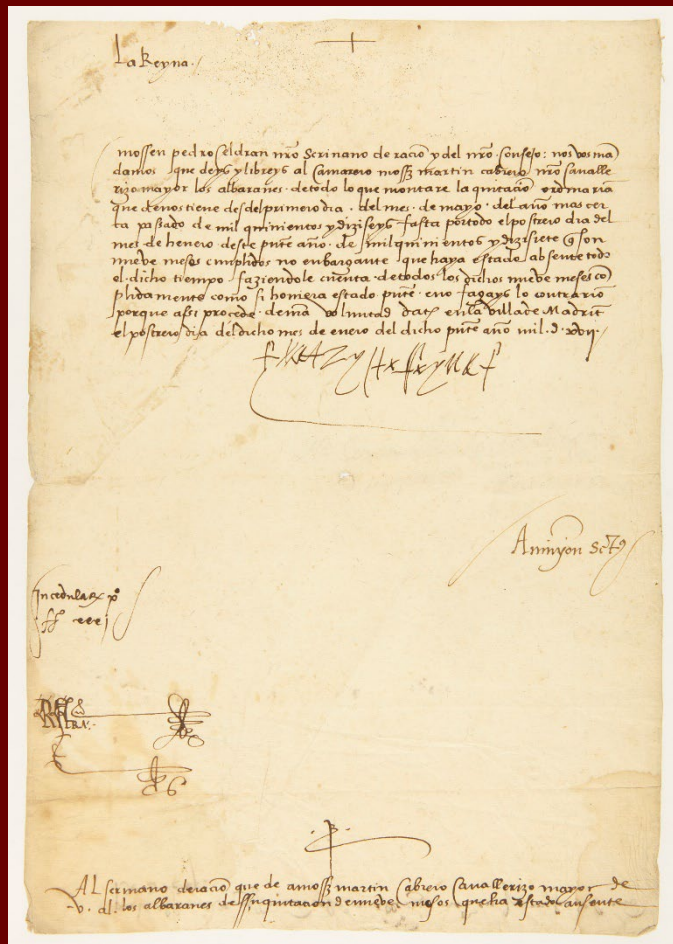 La Reyna.
mossen pedro Celdran nro Scrivano de racio y del nro Consejo: nos vos mā
damos que deys y libreys al Camarero mossē martin cabrero nro cavalle
rizo mayor los albaranes de todo lo que montare la quitacio ordinaria
que de nos tiene desdel primero dia del mes de mayo del año mas cer
ca passado de mil quinientos y diziseys fasta por todo el postrero dia del
mes de henero deste pnte año de mil quinientos y dizisiete q̄ son
nueve meses cumplidos no enbargante que haya estado absente todo
el dicho tiempo faziendole cuenta de todos los dichos nueve meses co
plidamente como si hoviera estado pnte. e no fagays lo contrario
porque assi procede de mia voluntad dat en la villa de Madrit
el postrero dia del dicho mes de enero del dicho pnte año mil.d.xvii.
Al scrivano de racio que de a mossē martin Cabrero Cavallerizo mayor de
v. al. los albaranes de su quitacion de nueve meses que ha estado ausente